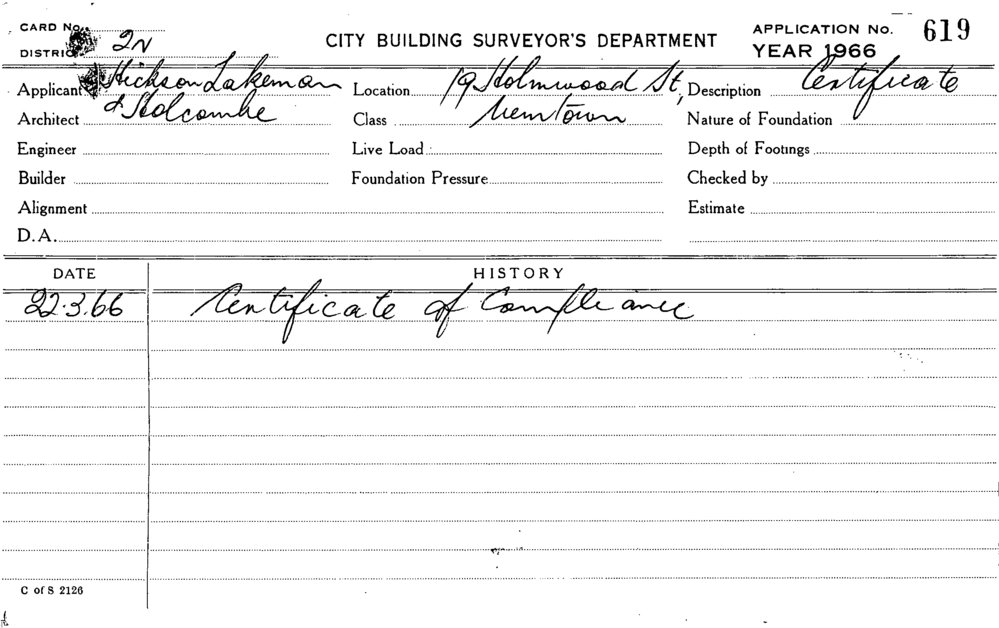 CARD No.
DISTRICT 2N
CITY BUILDING SURVEYOR'S DEPARTMENT
APPLICATION No. 619
YEAR 1966
Applicant Hickson Lakeman
Location 19 Holmwood St,
Description Certificate
Architect & Holcombe
Class Newtown
Nature of Foundation
Engineer
Live Load
Depth of Footings
Builder
Foundation Pressure
Checked by
Alignment
Estimate
D.A.
DATE
HISTORY
22.3.66 Certificate of Compliance
C of S 2126